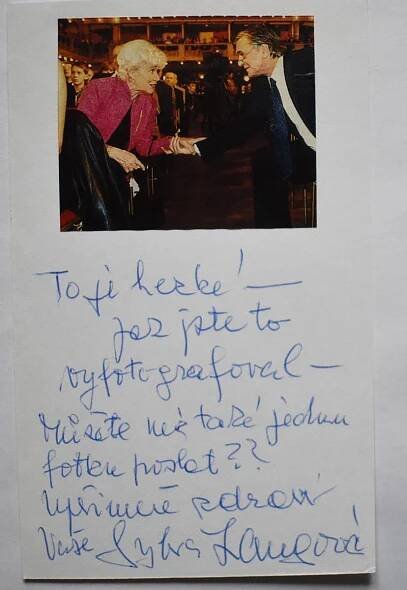 To je hezké! –
jak jste to
vyfotografoval –
Můžete mě také jednu
fotku poslat??
Upřímně zdraví
Vaše Sylva Langová